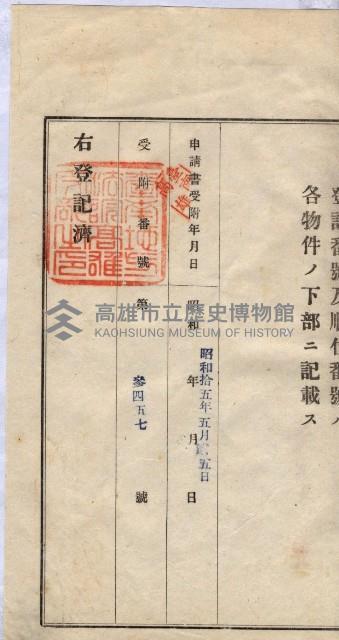 登記番號及順位番號ハ
各物件ノ下部ニ記載ス
申請書受附年月日
昭和 年 月 日
昭和拾五年五月 五日
受附番號
第 參四五七 號
右登記濟
高雄市立歷史博物館
KAOHSIUNG MUSEUM OF HISTORY